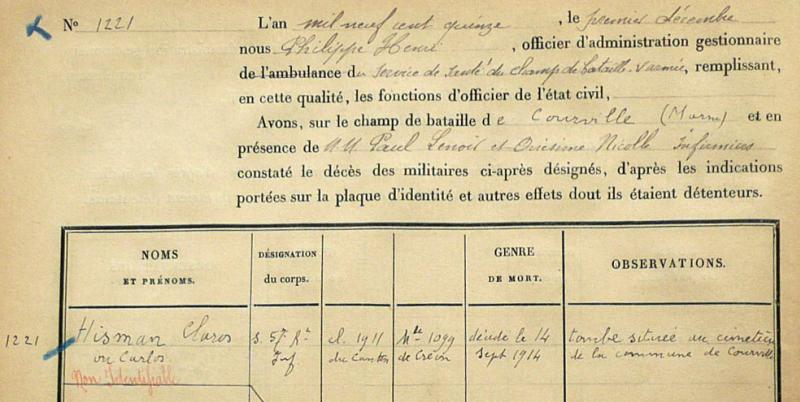 N° 1221 L'an mil neuf cent quinze, le premier décembre
nous Philippe Henri, officier d'administration gestionnaire
de l'ambulance du Service de Santé du Champ de bataille V armée, remplissant,
en cette qualité, les fonctions d'officier de l'état civil,
Avons, sur le champ de bataille de Courville (Marne) et en
présence de MM Paul Lenoir et Onésime Nicolle Infirmiers
constaté le décès des militaires ci-après désignés, d'après les indications
portées sur la plaque d'identité et autres effets dont ils étaient détenteurs.
NOMS ET PRÉNOMS.
DÉSIGNATION du corps.
GENRE DE MORT.
OBSERVATIONS.
1221
Hisman Claros
ou Carlos
Non Identifiable
s. 57e Rt
Inf
cl. 1911
du Canton
Mle 1099
décédé le 14
Sept 1914
tombe située au cimetière
de la commune de Courville